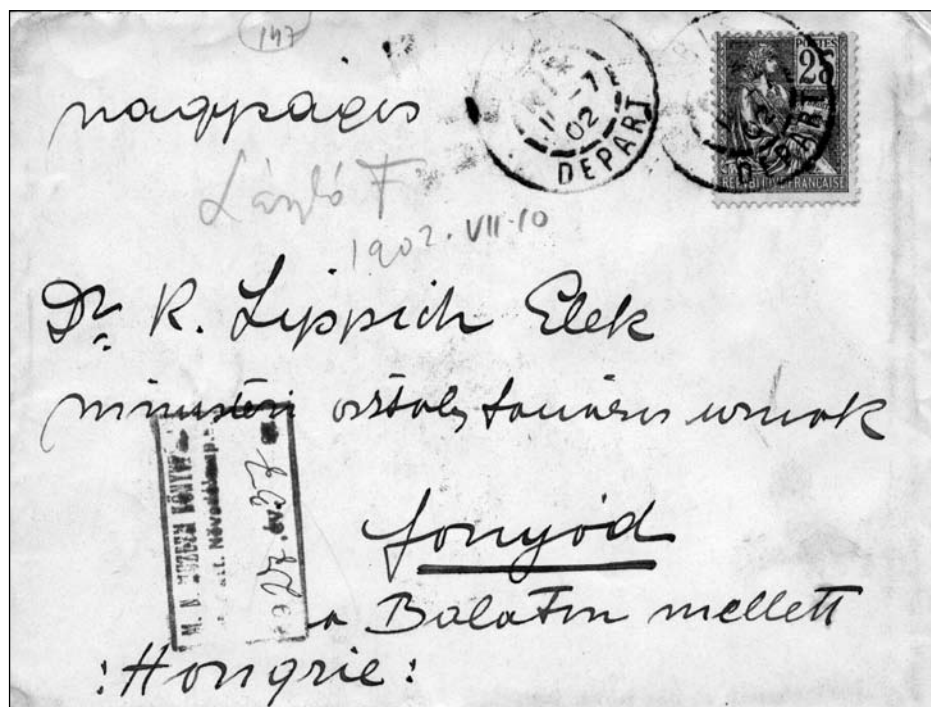 147
nagyságos
László F
1902. VII. 10
11 -7
02
DEPART
POSTES
25
02
DEPART
REPUBLIQUE FRANÇAISE
Dr. K. Lippich Elek
ministeri osztálytanácsos urnak
M. N. MUZEUM KÖNYVT
Növedéknap
Fonyód
a Balaton mellett
:Hongrie: